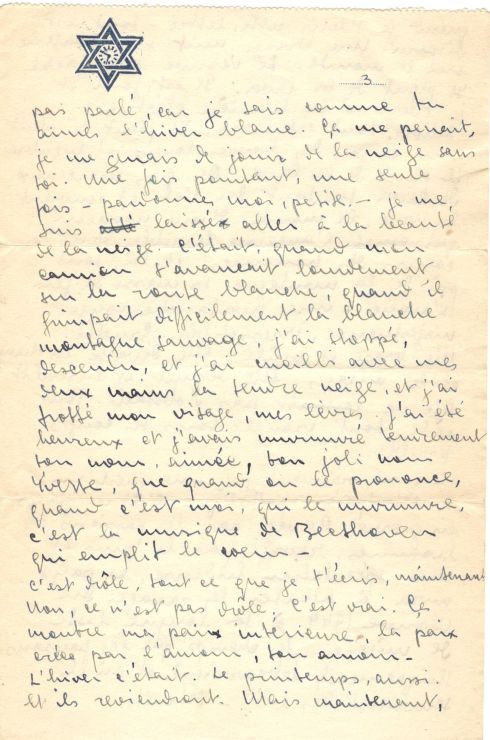 3
pas parlé, car je sais comme tu
aimes l'hiver blanc. Ça me peinait,
je me de jouir de la neige sans
toi. Une fois pourtant, une seule
fois - pardonnes moi, petite, - je me
suis allé laissé aller à la beauté
de la neige. C'était, quand mon
camion s'avancait lourdement
sur la route blanche, quand il
grimpait difficilement la blanche
montagne sauvage, j'ai stoppé,
descendu, et j'ai cueilli avec mes
deux mains la tendre neige, et j'ai
frotté mon visage, mes lèvres. J'ai été
heureux et j'avais murmuré tendrement
ton nom, aimée, ton joli nom
Yvette, que quand on le prononce,
quand c'est moi, qui le murmure,
c'est la musique de Beethoven
qui emplit le coeur -
C'est drôle, tout ce que je t'écris, maintenant
Non, ce n'est pas drôle. C'est vrai. Ça
montre ma paix intérieure, la paix
créée par l'amour, ton amour -
L'hiver c'était. Le printemps, aussi.
Et ils reviendront. Mais maintenant,